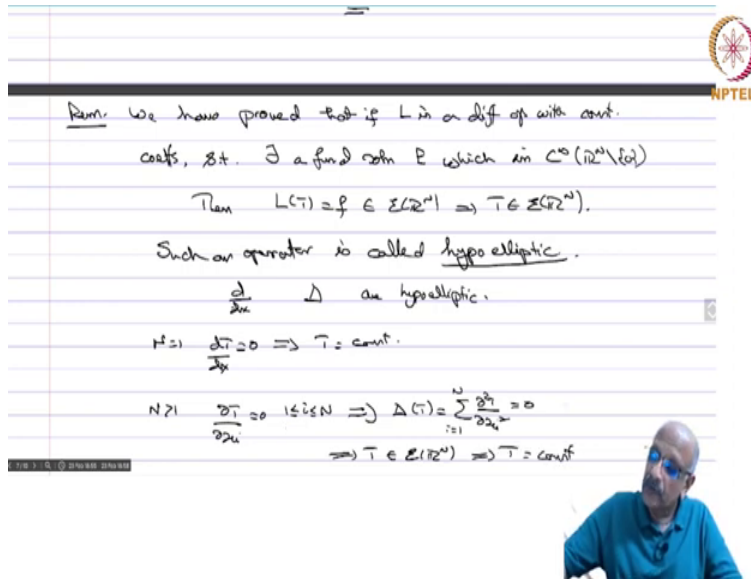 Rem. We have proved that if L is a diff op with const.
coeffs, s.t. ∃ a fund soln E which is C^∞(ℝ^N\{0})
Then L(T) = f ∈ ℰ(ℝ^N) ⇒ T ∈ ℰ(ℝ^N).
Such an operator is called hypoelliptic.
d/dx Δ are hypoelliptic.
N=1 dT/dx = 0 ⇒ T = const.
N>1 ∂T/∂x_i = 0 1≤i≤N ⇒ Δ(T) = Σ_{i=1}^N ∂²T/∂x_i² = 0
⇒ T ∈ ℰ(ℝ^N) ⇒ T = const
NPTEL